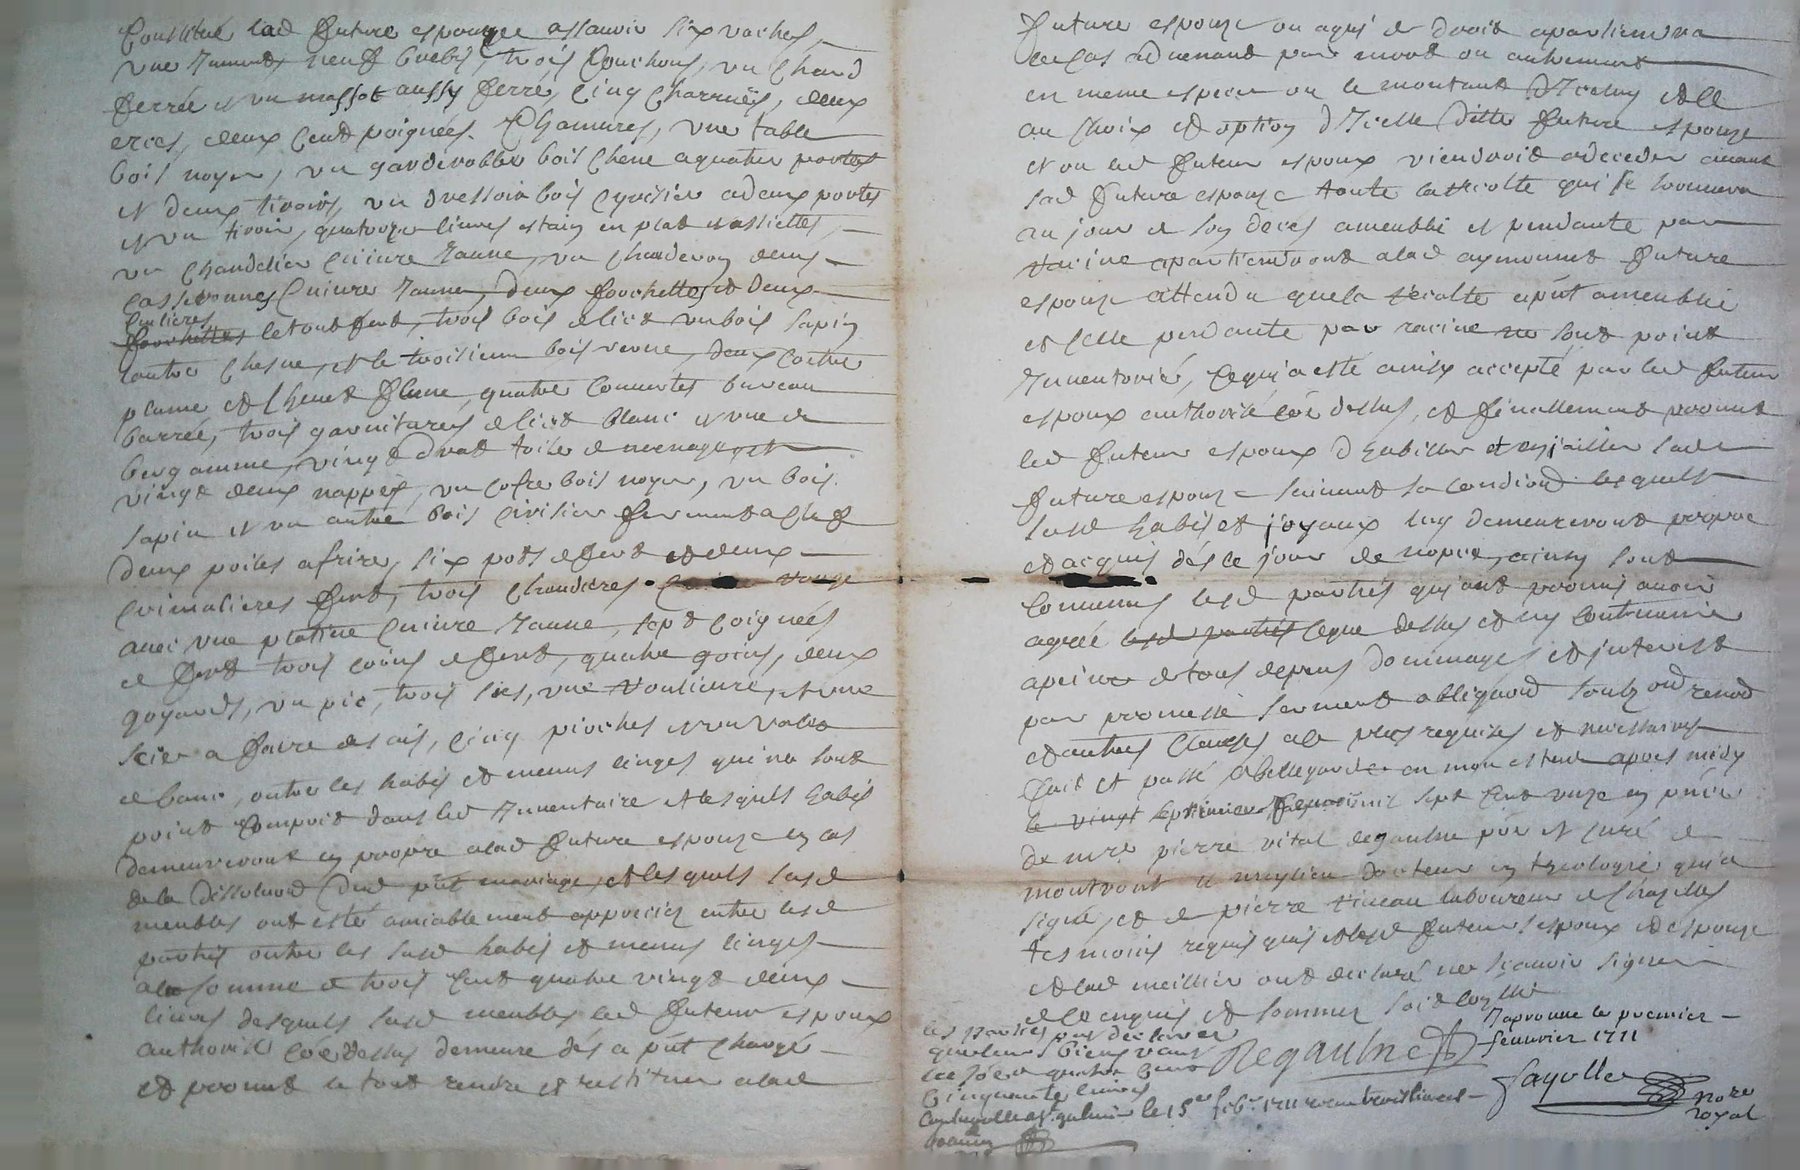 Constitué lad future espouze assauoir six vaches
vne Jument, neuf brebis, trois Couchons, vn Chard
ferrée et vn massot aussy ferré, Cinq Charrües, deux
eries, deux Cent poignées Chanures, vne table
bois noyer, vn garderobbe bois Chene a quatre portes
et deux tiroirs, vn dressoir bois cerisier a deux portes
et vn tiroir, quatorze liures estain en plat et assiettes,
vn Chandelier Cuiure Jaune, vn Chauderon deux
Casseronnes Cuiure Jaune, deux fourchettes et deux
Cuilieres
fourchettes le tout fert, trois bois de lict vn bois sapin
lautre Chesne, et le troisieme bois verne, deux Coitre
plume et Cheuet plume, quatre Couuertes bureau
barrée, trois garnitures de lict blanc et vne de
bergamme, vingt drat toile de menage et
vingt deux nappes, vn cofre bois noyer, vn bois
sapin et vn autre bois Cirisier fermant a Clef
deux poiles a frire, six pots de fert et deux
Crimalieres fert, trois Chaudieres rouge
auec vne platine Cuiure Jaune, sept Coignées
de fert trois coins de fert, quatre goués, deux
goyards, vn pic, trois sies, vne et vne
Scie a faire des ais, Cinq pioches et vn valet
de banc, outre les habis et menus linges qui ne sont
point Compris dans led Jnuentaire et lesquels habis
demeureront en propre a lad future espouze en cas
de la dissolution dud pnt mariage, et lesquels susd
meubles ont esté amiablement appreciez entre lesd
parties outre les susd habis et menus linges
a la somme de trois Cent quatre vingt deux
liures desquels susd meubles led futeur espoux
authorisé Coe dessus demeure dés a pnt Chargé
et promet le tout rendre et restituer a lad
future espouze ou a qui de droit apartiendra
le cas aduenant par mort ou autrement
en meme espece ou le montant d'Jceluy et le
au Choix et option d'Jcelle ditte future espouze
et ou led futeur espoux viendroit a deceder auant
lad future espouze toute la recolte qui se trouuera
au jour de son deces ameublie et pendante par
racine apartiendront a lad aymonnet future
espouze attendu que la recolte a pnt ameublie
et Celle pendante par racine ne sont point
Jnuentorié, Ce qui a esté ainsy accepté par led futeur
espoux authorisé Coe dessus, et finallement promet
led futeur espoux d'habiller et enjoailler lade
future espouze suiuant sa Condition lesquels
susd habis et joyaux luy demeureront propre
et acquis dés le jour de nopce, ainsy sont
Conuenus lesd parties qui ont promis auoir
agreé lesd parties Ce que dessus et ny Contreuenir
a peine de tous depens dommages et jnterest
par promesse serment obligaon soubz on renon
et autres Clauses a ce plus requises et necessaires
fait et passé a bellegarde en mon estude apres midy
le vingt septieme Januier mil sept Cent unze en pnce
de mre pierre vital regaulne pbr et curé de
montront le doucteur en theologie qui a
signé, et de pierre tineau laboureur de Chazelles
tesmoins requis qui et lesd futeurs espoux et espouze
et lad meillier ont declaré ne Scauoir signer
de ce enquis et sommez
les parties ont declarer
que leurs biens vaut
quatre Cens
Cinquante liures
Regaulne
Japronue le premier
feuurier 1711
fayolle
Nore
royal
le 15e feb. 1711 receu trois liures